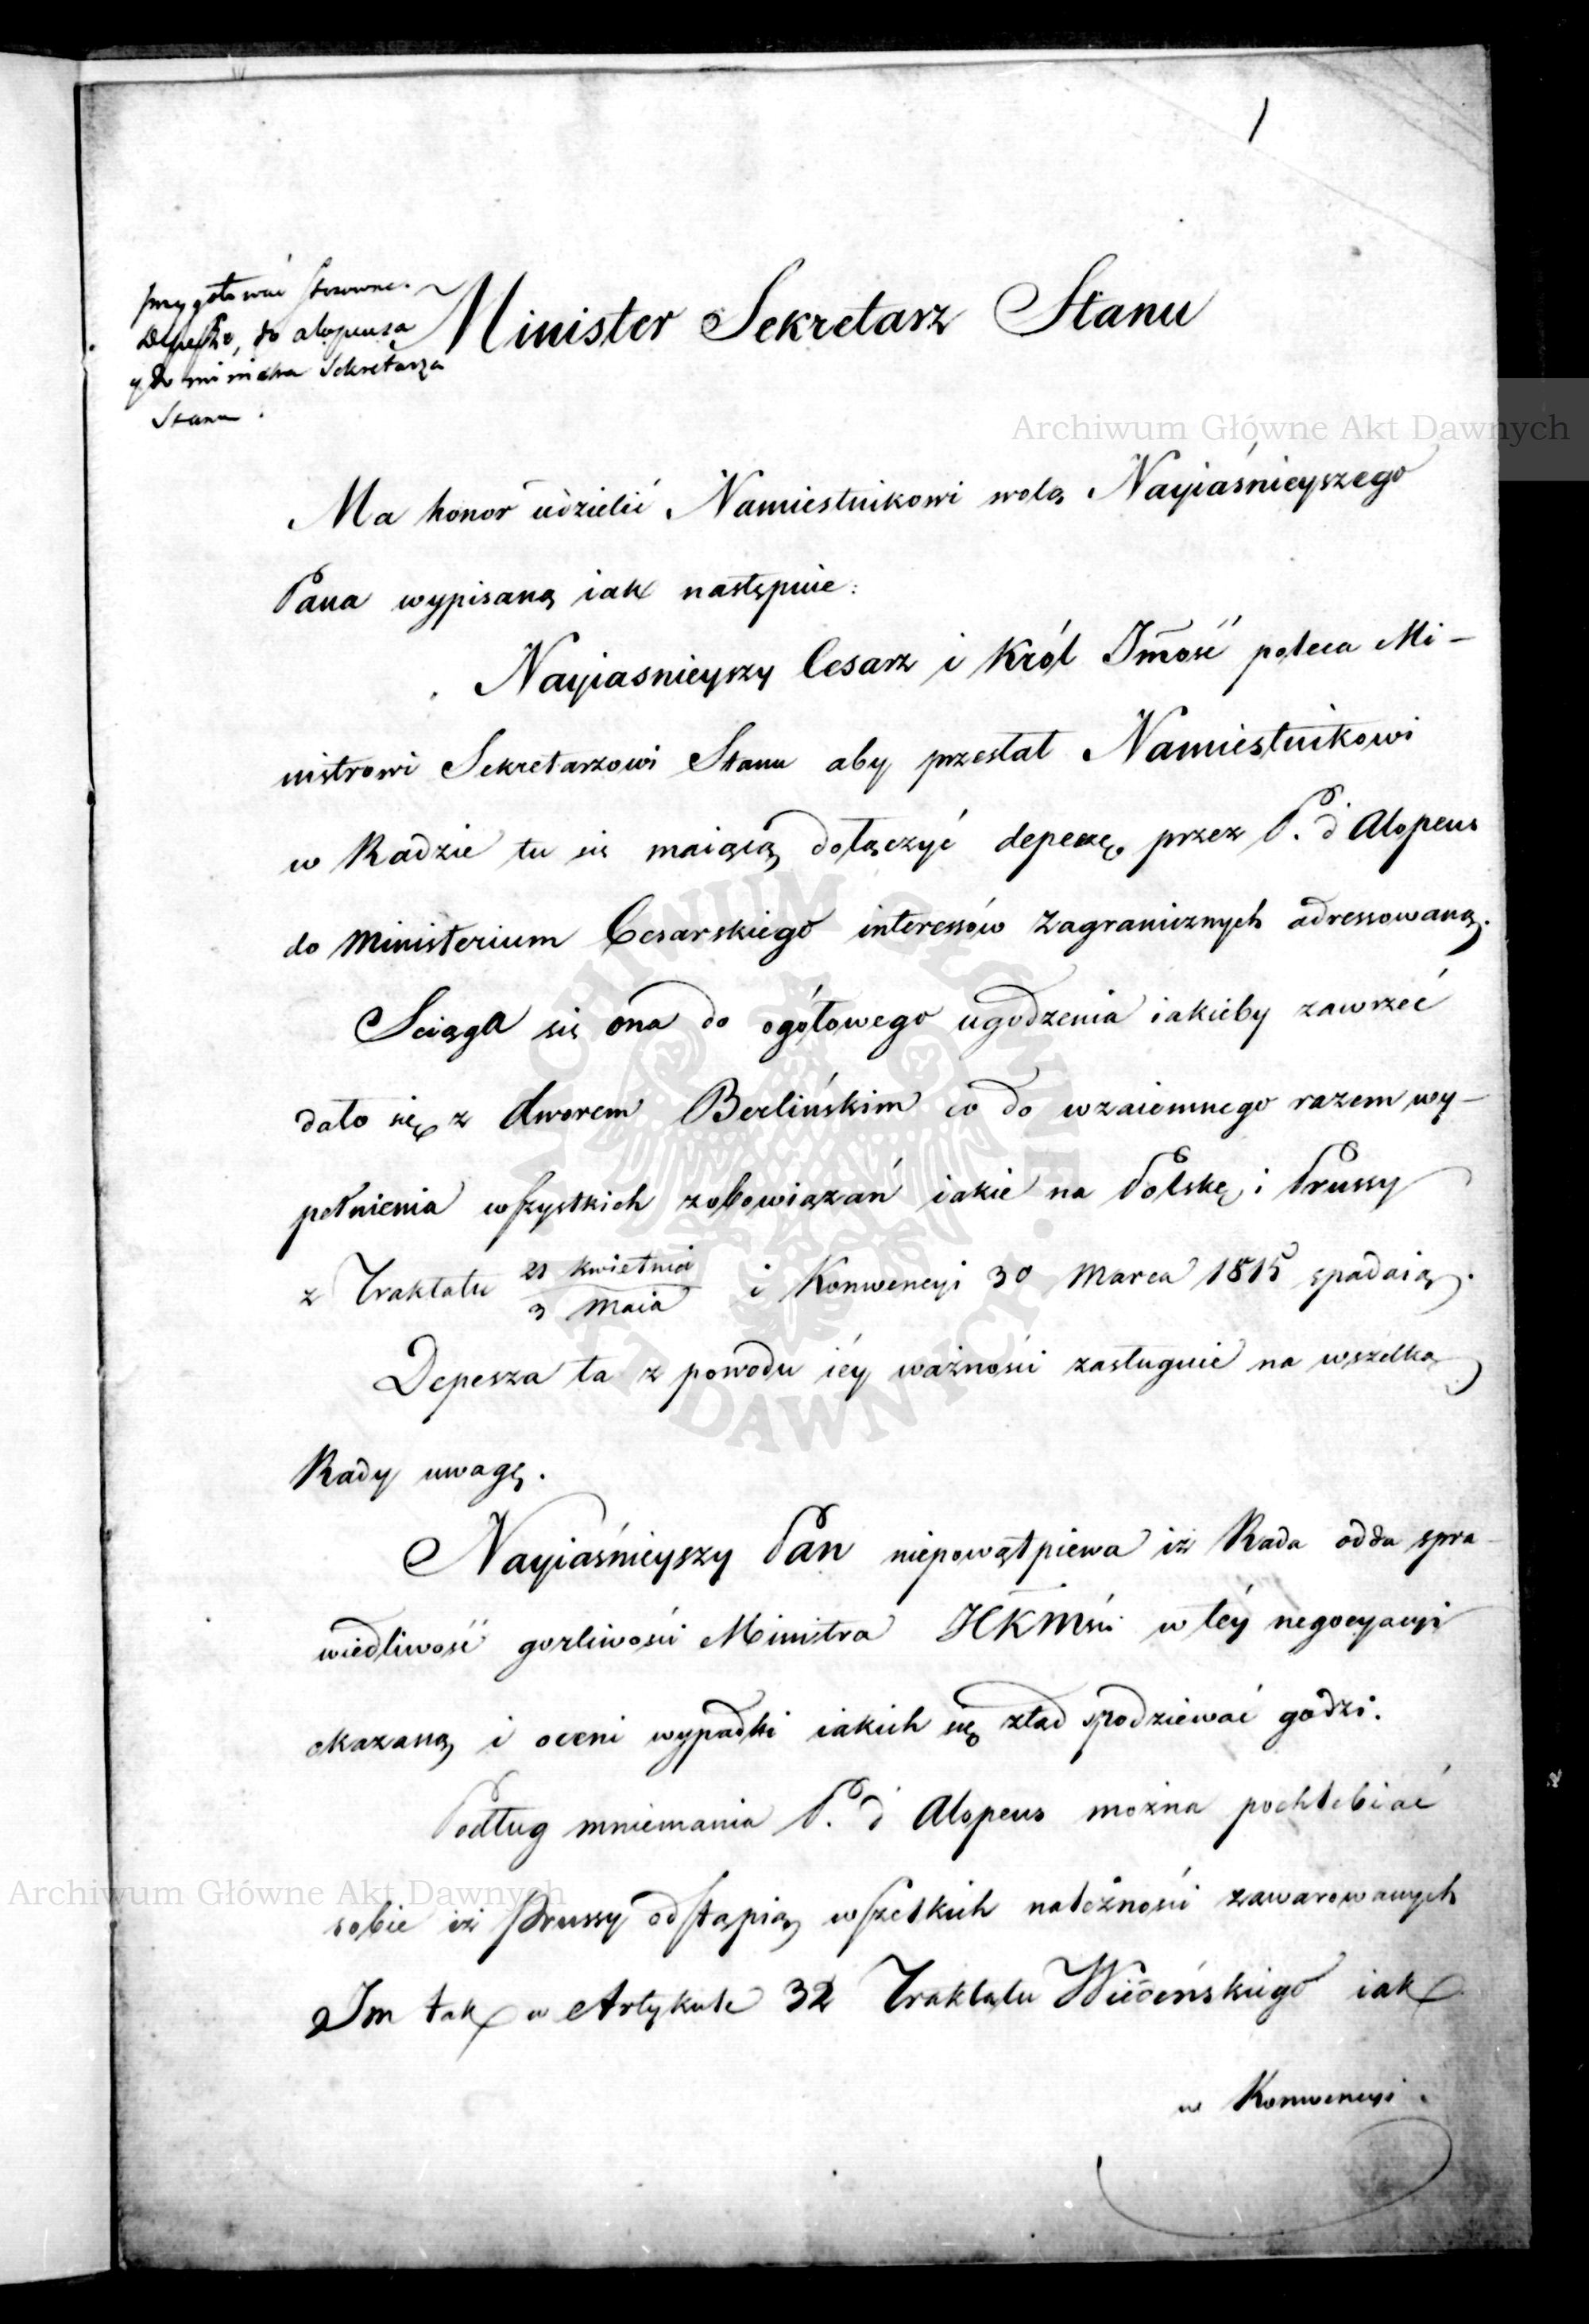 1
przygotować stosowne
Depesze, do alopeusa
y do ministra Sekretarza
Stanu.
Minister Sekretarz Stanu
Archiwum Główne Akt Dawnych
Ma honor udzielić Namiestnikowi wolą Nayiaśnieyszego
Pana wypisaną iak następuie:
Nayiasnieyszy Cesarz i Król Jmość poleca Mi-
nistrowi Sekretarzowi Stanu aby przesłał Namiestnikowi
w Radzie tu się maiącą dołączyć depeszę przez P. d'Alopeus
do Ministerium Cesarskiego interessów zagranicznych adressowaną.
Sciąga się ona do ogółowego ugodzenia iakieby zawrzeć
dało się z dworem Berlińskim co do wzaiemnego razem wy-
pełnienia wszystkich zobowiązań iakie na Polskę i Prussy
z Traktatu 21 kwietnia / 3 Maia i Konwencyi 30 Marca 1815 spadaią.
Depesza ta z powodu iéy ważności zasługuie na wszelką
Rady uwagę.
Nayiaśnieyszy Pan niepowątpiewa iż Rada odda spra-
wiedliwość gorliwości Ministra JCKMści w téy negocyacyi
okazaną i oceni wypadki iakich się ztąd spodziewać godzi.
Podług mniemania P. d'Alopeus można pochlebiać
Archiwum Główne Akt Dawnych
sobie iż Prussy odstąpią wszelkich należności zawarowanych
Im tak w Artykule 32 Traktatu Wiedeńskiego iak
w Konwencyi